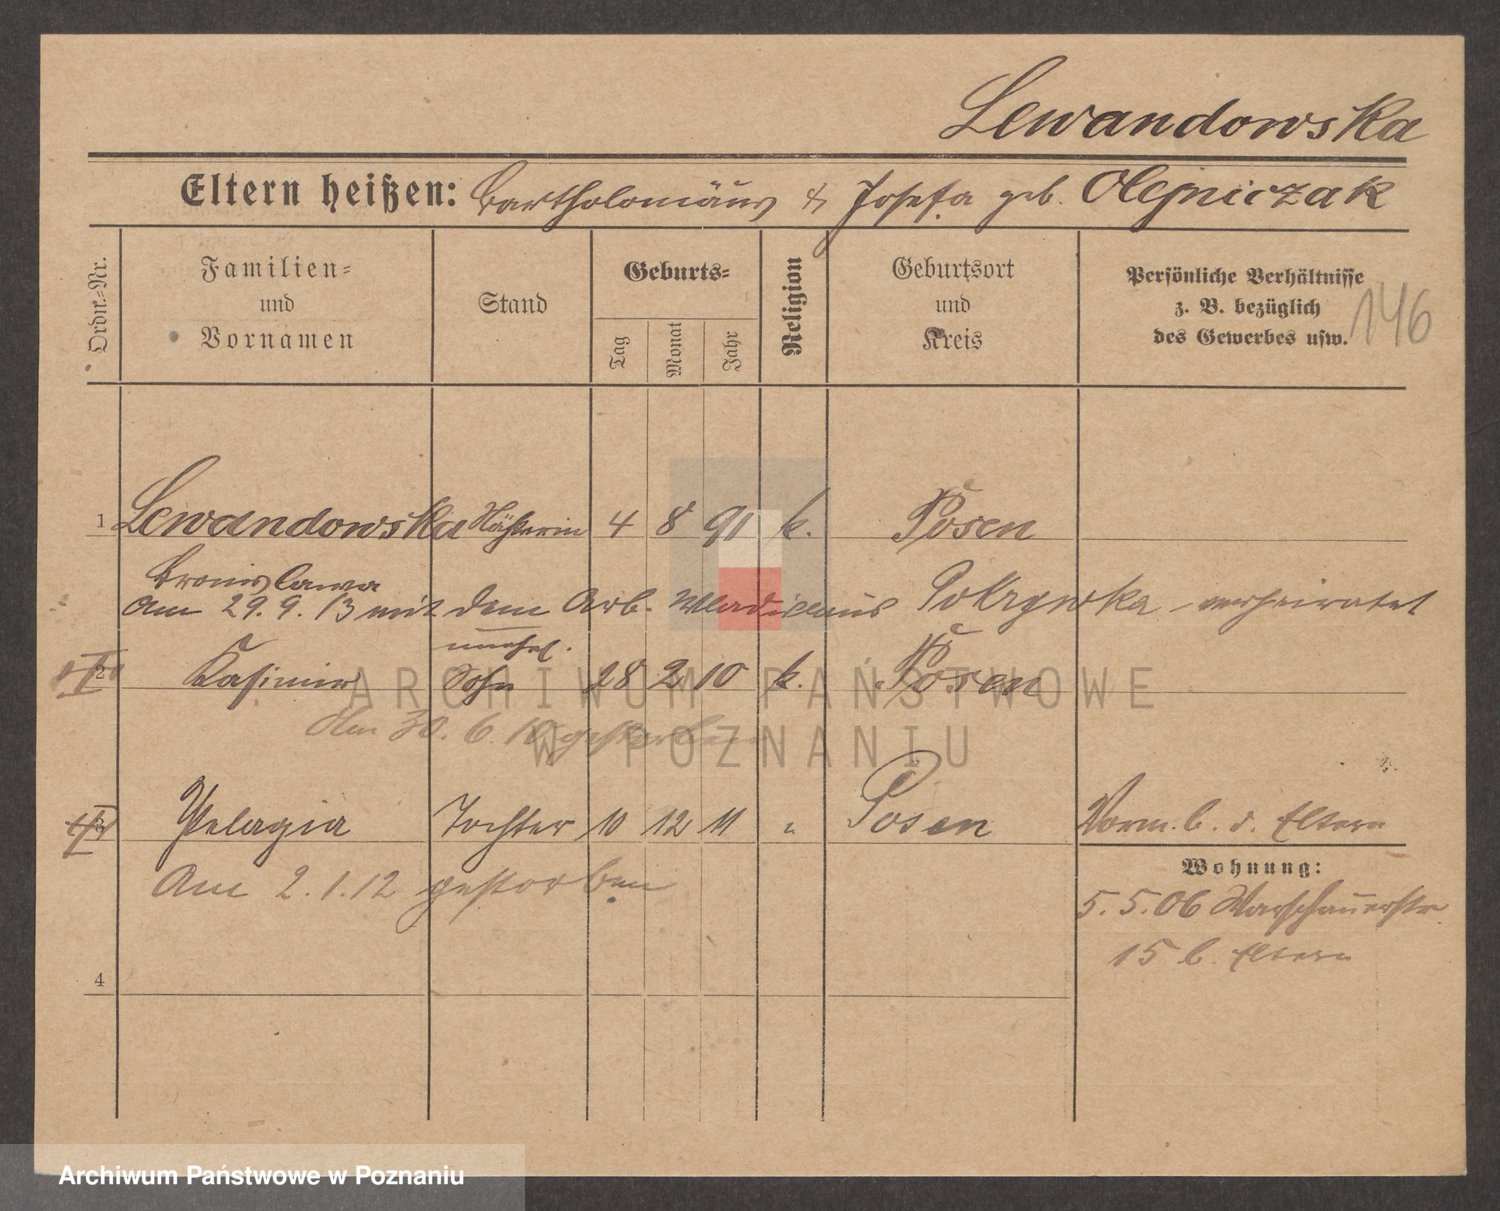 Lewandowska
Eltern heißen: Bartholomäus & Josefa geb. Olejniczak
Ordn.-Nr.
Familien- und Vornamen
Stand
Geburts-
Tag
Monat
Jahr
Religion
Geburtsort und Kreis
Persönliche Verhältnisse
z. B. bezüglich
des Gewerbes usw.
146
1 Lewandowska Näherin 4 8 91 k. Posen
Bronislawa
am 29.9.13 mit dem Arb. Wladislaus Pokrywka verheiratet
unehel.
2 Kasimir Sohn 28 2 10 k. Posen
Am 30.6.10 gestorben
3 Pelagia Tochter 10 12 11 " Posen Vorm. b. d. Eltern
Am 2.1.12 gestorben
Wohnung:
5.5.06 Warschauerstr.
15 b. Eltern
4
ARCHIWUM PAŃSTWOWE
W POZNANIU
Archiwum Państwowe w Poznaniu